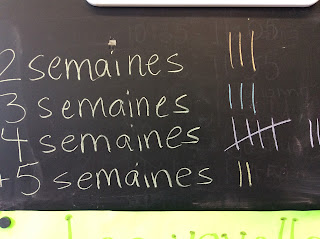 2 semaines |||
3 semaines |||
4 semaines 𝍸 ||
+5 semaines ||